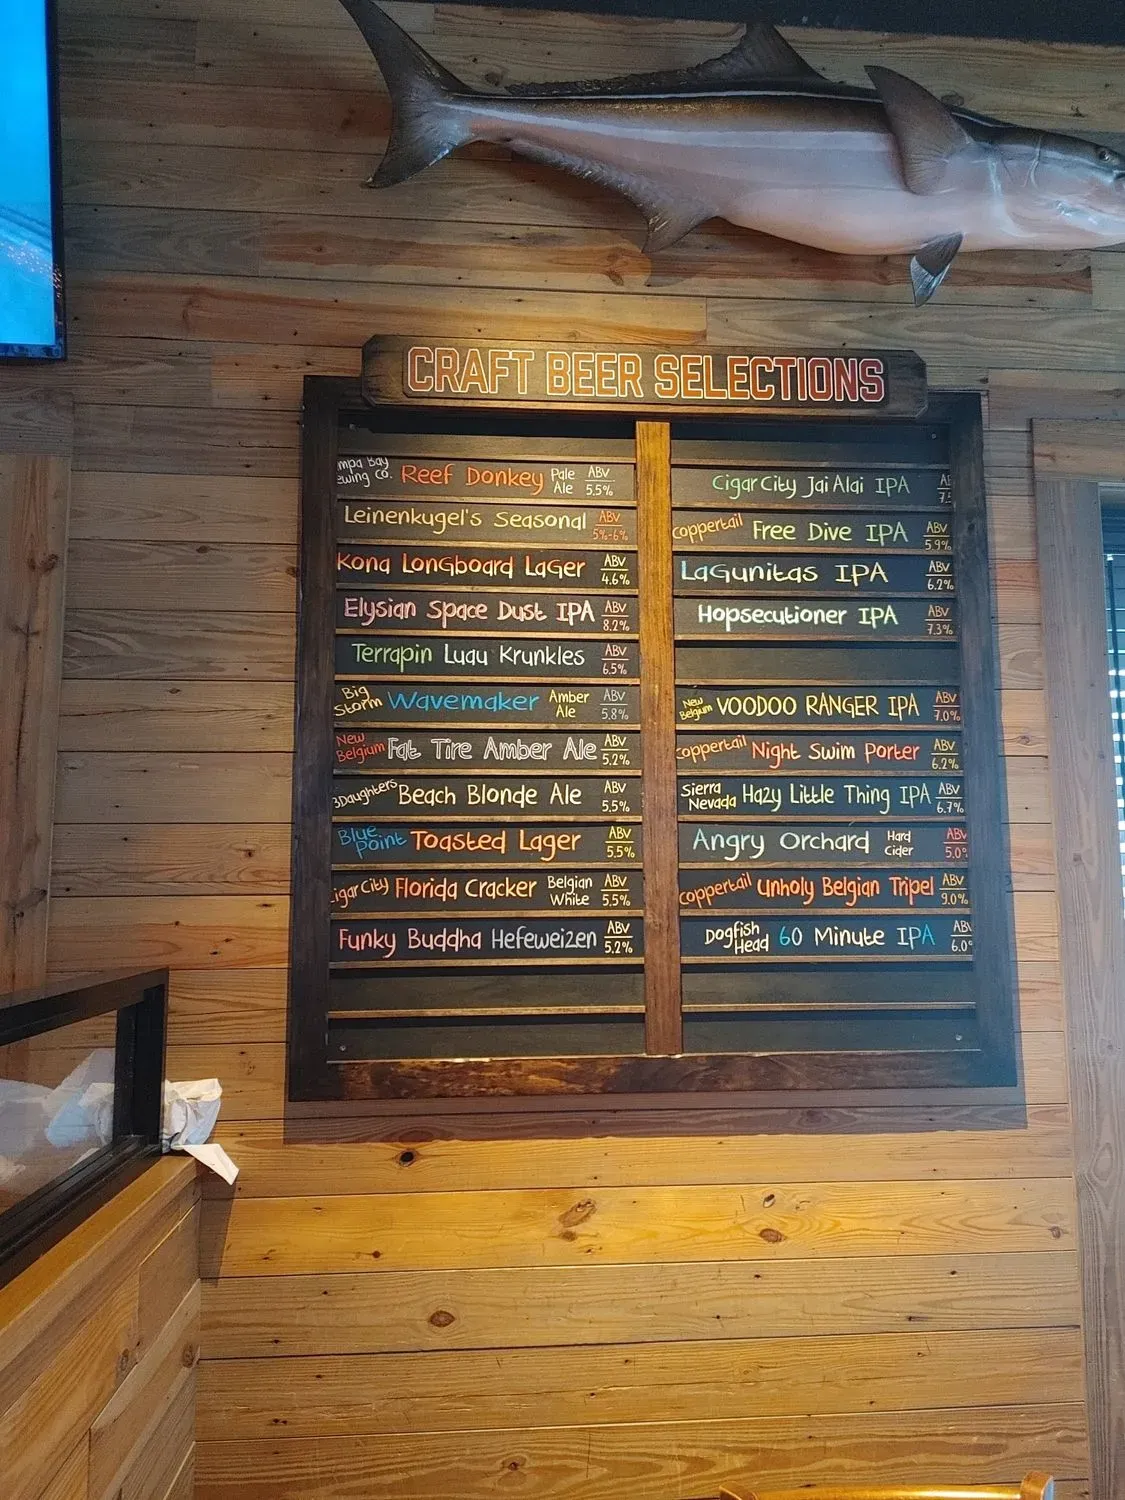 CRAFT BEER SELECTIONS
mpa Bay ewing Co. Reef Donkey Pale Ale ABV 5.5%
Leinenkugel's Seasonal ABV 5%-6%
Kona Longboard Lager ABV 4.6%
Elysian Space Dust IPA ABV 8.2%
Terrapin Luau Krunkles ABV 6.5%
Big Storm Wavemaker Amber Ale ABV 5.8%
New Belgium Fat Tire Amber Ale ABV 5.2%
3Daughters Beach Blonde Ale ABV 5.5%
Blue Point Toasted Lager ABV 5.5%
igar City Florida Cracker Belgian White ABV 5.5%
Funky Buddha Hefeweizen ABV 5.2%
Cigar City Jai Alai IPA
Coppertail Free Dive IPA ABV 5.9%
Lagunitas IPA ABV 6.2%
Hopsecutioner IPA ABV 7.3%
New Belgium VOODOO RANGER IPA ABV 7.0%
Coppertail Night Swim Porter ABV 6.2%
Sierra Nevada Hazy Little Thing IPA ABV 6.7%
Angry Orchard Hard Cider ABV 5.0%
Coppertail Unholy Belgian Tripel ABV 9.0%
Dogfish Head 60 Minute IPA ABV 6.0%